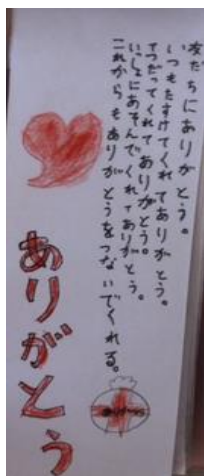 友だちにありがとう。
いつもたすけてくれてありがとう。
てつだってくれてありがとう。
いっしょにあそんでくれてありがとう。
これからもありがとうをつないでくれる。
ありがとう